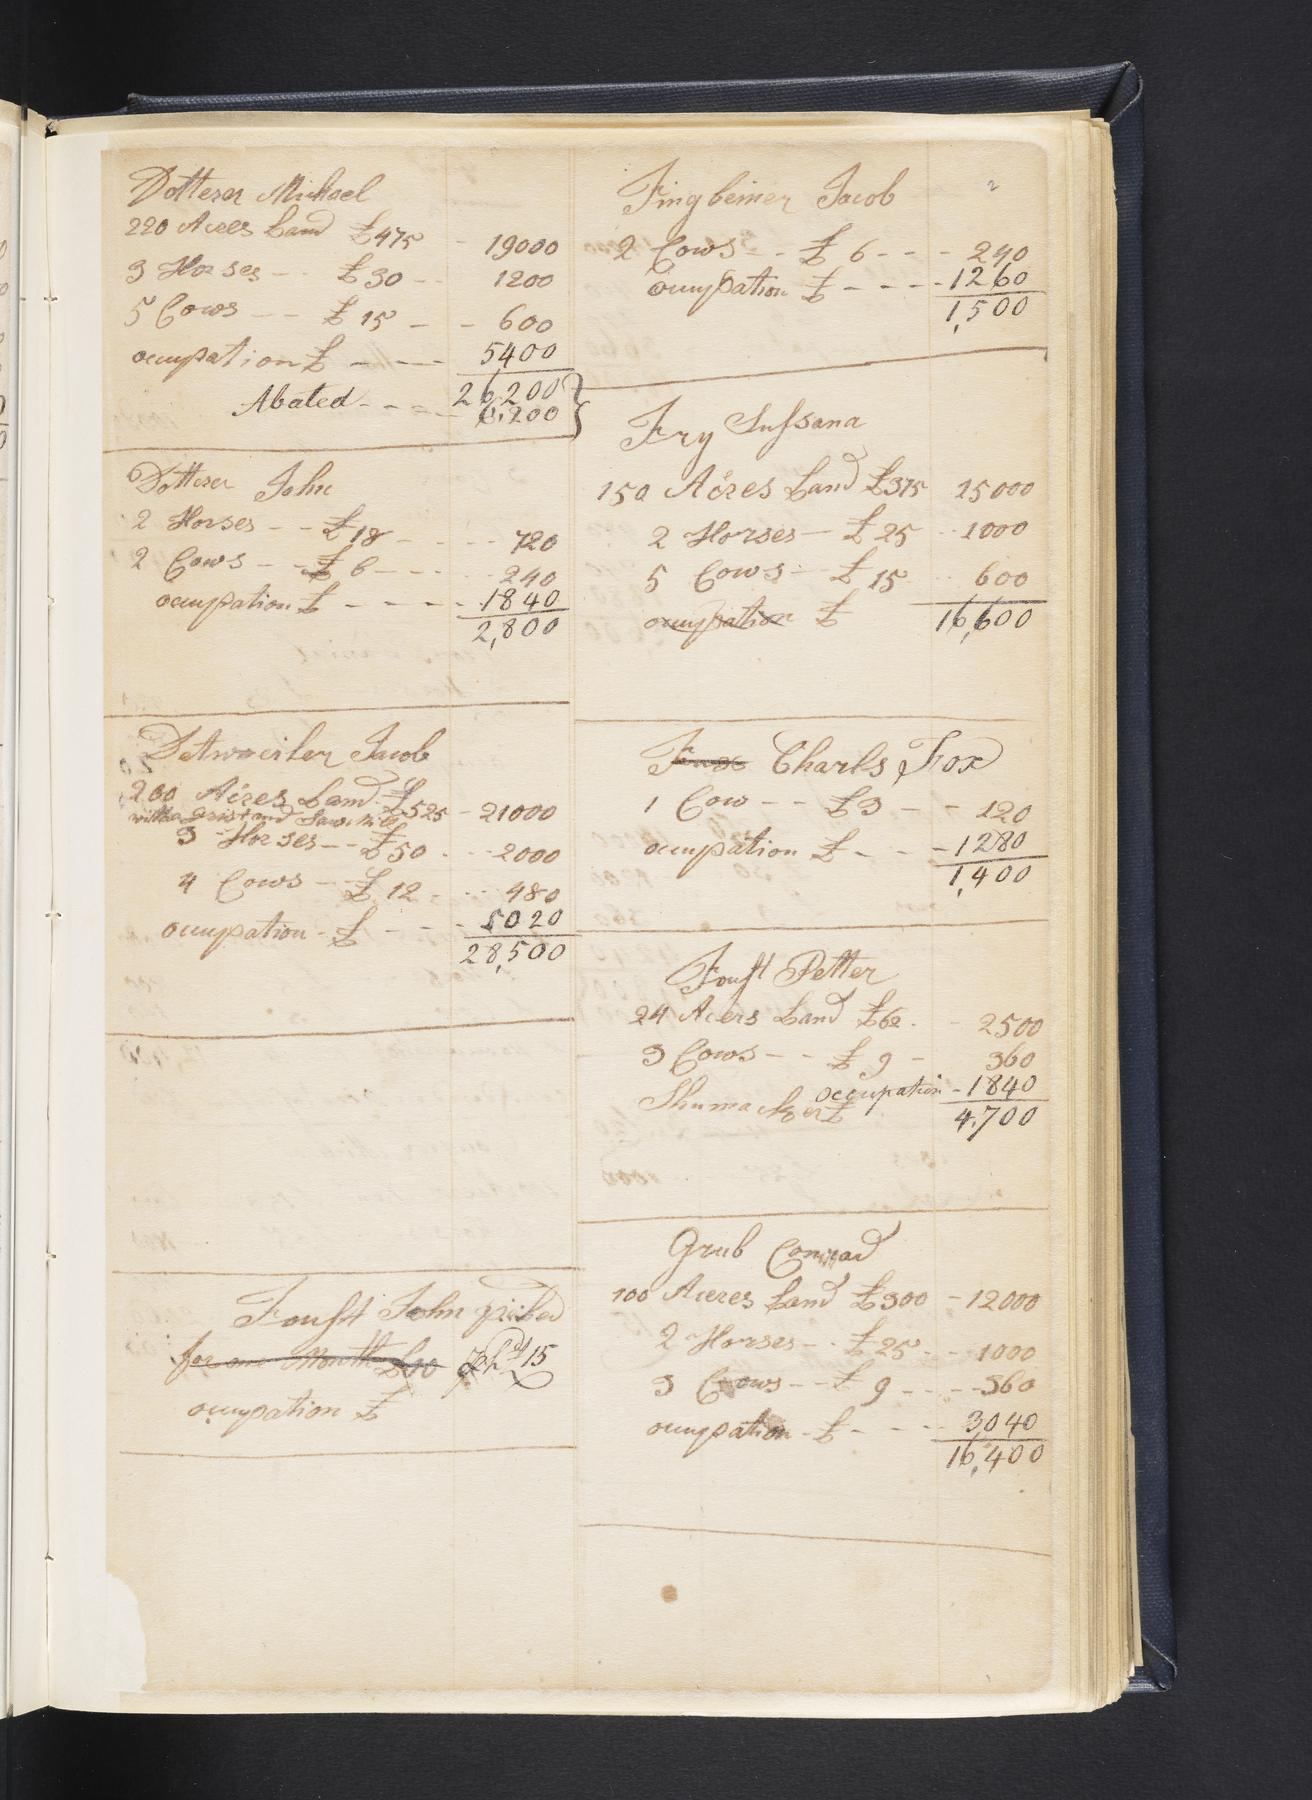 Dotterer Michael
220 Acres Land £475 - 19000
3 Horses - - £30 - - 1200
5 Cows - - £15 - - 600
occupation £ - - - - 5400
26,200
Abated - - - - 6,200
Dotterer John
2 Horses - - £18 - - - - 720
2 Cows - - £6 - - - - 240
occupation £ - - - - 1840
2,800
Detweiler Jacob
200 Acres Land £525 - 21000
with a grist and Saw Mill
3 Horses - - £50 - - 2000
4 Cows - £12 - - - 480
occupation - £ - - - 5020
28,500
Foust John
for one Month £10 15
occupation £
Fingbeiner Jacob
2 Cows - - £6 - - - 240
occupation £ - - - - 1260
1,500
Fry Sussana
150 Acres Land £375 15000
2 Horses - £25 - 1000
5 Cows - £15 - 600
occupation £ 16,600
Charls Fox
1 Cow - - £3 - - 120
occupation £ - - - 1280
1,400
Foust Petter
24 Acers Land £62 - 2500
3 Cows - - £9 - 360
Shumacker £ occupation - 1840
4,700
Grub Conrad
100 Acres Land £300 - 12000
2 Horses - - £25 - - 1000
3 Cows - - £9 - - - 360
occupation - £ - - - 3040
16,400